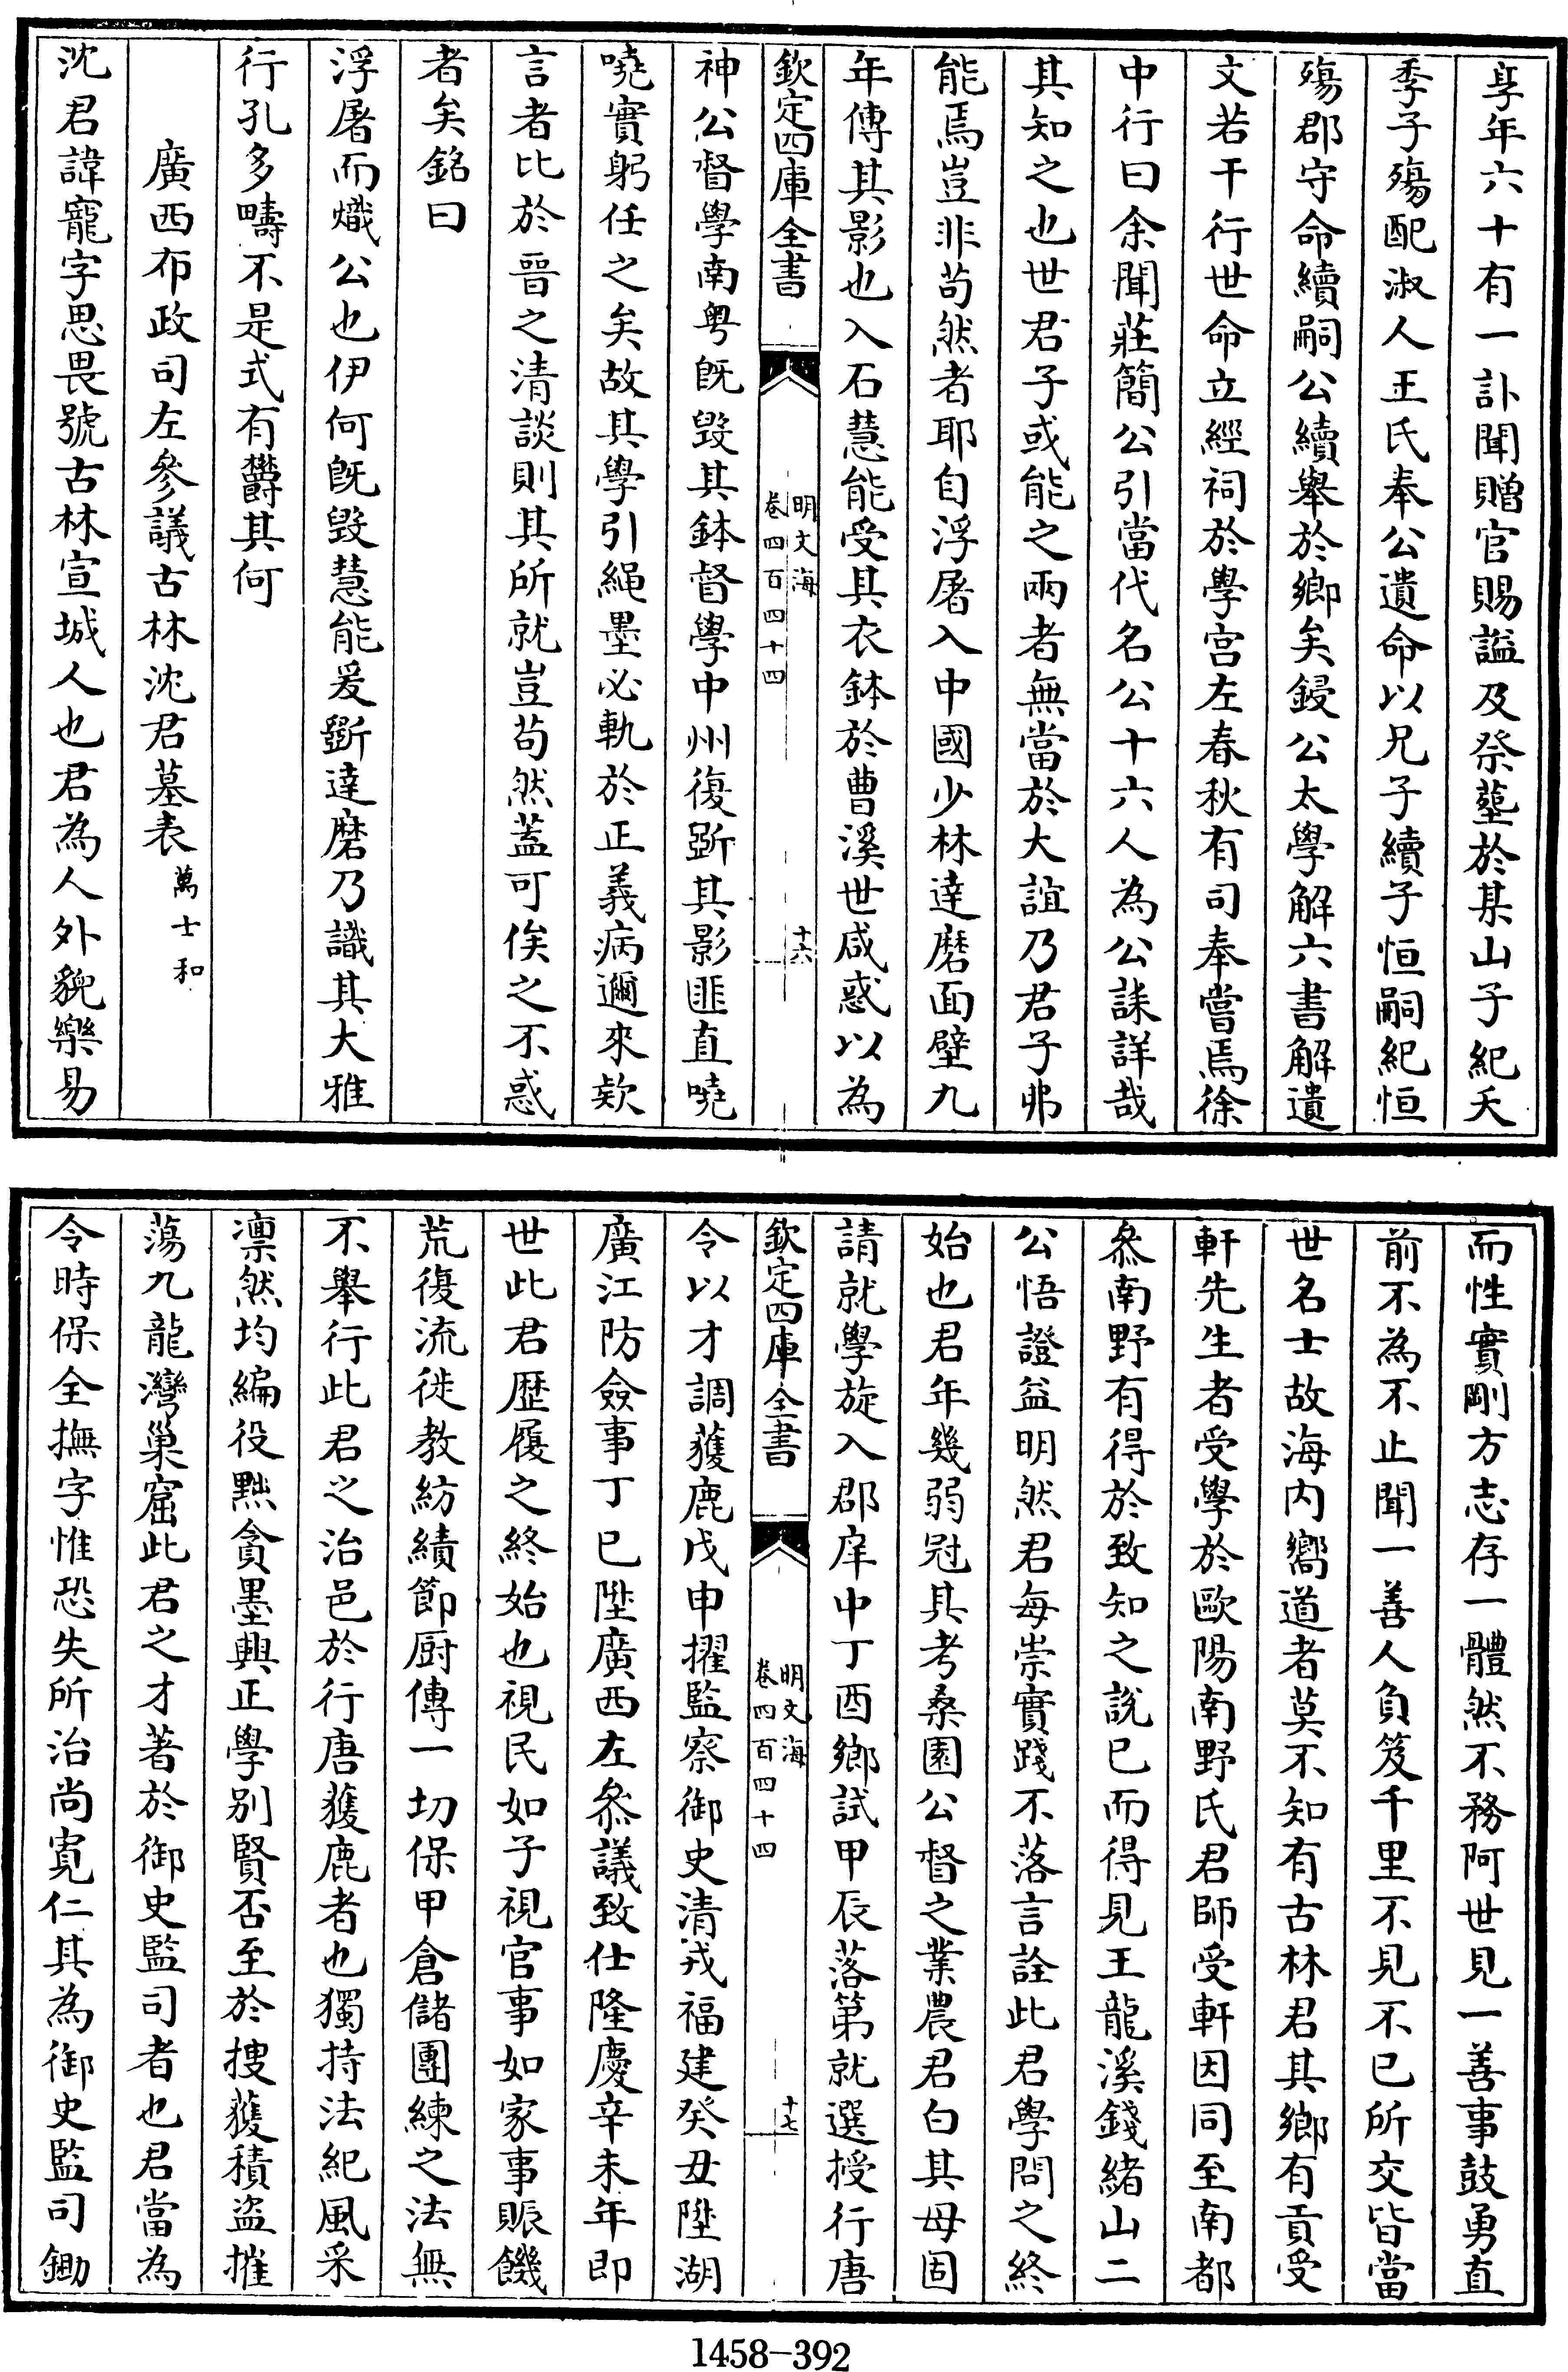 享年六十有一訃聞贈官賜謚及祭塟於某山子紀夭
季子殤配淑人王氏奉公遺命以兄子續子恒嗣紀恒
殤郡守命續嗣公續舉於鄉矣鋟公太學解六書解遺
文若干行世命立經祠於學宫左春秋有司奉嘗焉徐
中行曰余聞莊簡公引當代名公十六人為公誄詳哉
其知之也世君子或能之兩者無當於大誼乃君子弗
能焉豈非茍然者耶自浮屠入中國少林達磨面壁九
年傳其影也入石慧能受其衣鉢於曹溪世咸惑以為
欽定四庫全書
明文海
卷四百四十四
十六
神公督學南粤既毀其鉢督學中州復斲其影匪直嘵
嘵實躬任之矣故其學引繩墨必軌於正義病邇來欵
言者比於晉之清談則其所就豈茍然蓋可俟之不惑
者矣銘曰
浮屠而熾公也伊何既毀慧能爰斲達磨乃識其大雅
行孔多疇不是式有欝其何
廣西布政司左參議古林沈君墓表 萬士和
沈君諱寵字思畏號古林宣城人也君為人外貌樂易
而性實剛方志存一體然不務阿世見一善事鼓勇直
前不為不止聞一善人負笈千里不見不已所交皆當
世名士故海内嚮道者莫不知有古林君其鄉有貢受
軒先生者受學於歐陽南野氏君師受軒因同至南都
叅南野有得於致知之說已而得見王龍溪錢緒山二
公悟證益明然君每崇實踐不落言詮此君學問之終
始也君年幾弱冠其考桑園公督之業農君白其母固
請就學旋入郡庠中丁酉鄉試甲辰落第就選授行唐
欽定四庫全書
明文海
卷四百四十四
十七
令以才調獲鹿戊申擢監察御史清戎福建癸丑陞湖
廣江防僉事丁巳陞廣西左叅議致仕隆慶辛未年即
世此君歷履之終始也視民如子視官事如家事賑饑
荒復流徙教紡績節厨傳一切保甲倉儲團練之法無
不舉行此君之治邑於行唐獲鹿者也獨持法紀風采
凛然均編役黜貪墨興正學别賢否至於捜獲積盜摧
蕩九龍灣巢窟此君之才著於御史監司者也君當為
令時保全撫字惟恐失所治尚寛仁其為御史監司鋤
1458-392